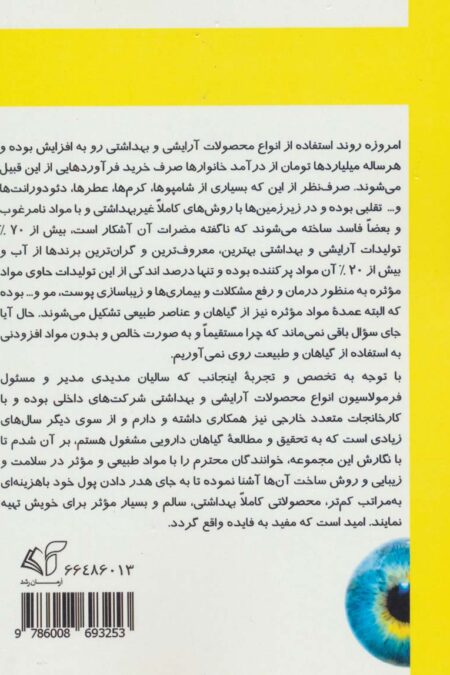 امروزه روند استفاده از انواع محصولات آرایشی و بهداشتی رو به افزایش بوده و
هرساله میلیاردها تومان از درآمد خانوارها صرف خرید فرآوردهایی از این قبیل
می‌شوند. صرف‌نظر از این که بسیاری از شامپوها، کرم‌ها، عطرها، دئودورانت‌ها
و... تقلبی بوده و در زیرزمین‌ها با روش‌های کاملاً غیربهداشتی و با مواد نامرغوب
و بعضاً فاسد ساخته می‌شوند که ناگفته مضرات آن آشکار است، بیش از ۷۰٪
تولیدات آرایشی و بهداشتی بهترین، معروف‌ترین و گران‌ترین برندها از آب و
بیش از ۲۰٪ آن مواد پرکننده بوده و تنها درصد اندکی از این تولیدات حاوی مواد
مؤثره به منظور درمان و رفع مشکلات و بیماری‌ها و زیباسازی پوست، مو و... بوده
که البته عمدهٔ مواد مؤثره نیز از گیاهان و عناصر طبیعی تشکیل می‌شوند. حال آیا
جای سؤال باقی نمی‌ماند که چرا مستقیماً و به صورت خالص و بدون مواد افزودنی
به استفاده از گیاهان و طبیعت روی نمی‌آوریم.
با توجه به تخصص و تجربهٔ اینجانب که سالیان مدیدی مدیر و مسئول
فرمولاسیون انواع محصولات آرایشی و بهداشتی شرکت‌های داخلی بوده و با
کارخانجات متعدد خارجی نیز همکاری داشته و دارم و از سوی دیگر سال‌های
زیادی است که به تحقیق و مطالعهٔ گیاهان دارویی مشغول هستم، بر آن شدم تا
با نگارش این مجموعه، خوانندگان محترم را با مواد طبیعی و مؤثر در سلامت و
زیبایی و روش ساخت آن‌ها آشنا نموده تا به جای هدر دادن پول خود باهزینه‌ای
به‌مراتب کم‌تر، محصولاتی کاملاً بهداشتی، سالم و بسیار مؤثر برای خویش تهیه
نمایند. امید است که مفید به فایده واقع گردد.
۶۶۴۸۶۰۱۳
آرمان رشد
9 786008 693253